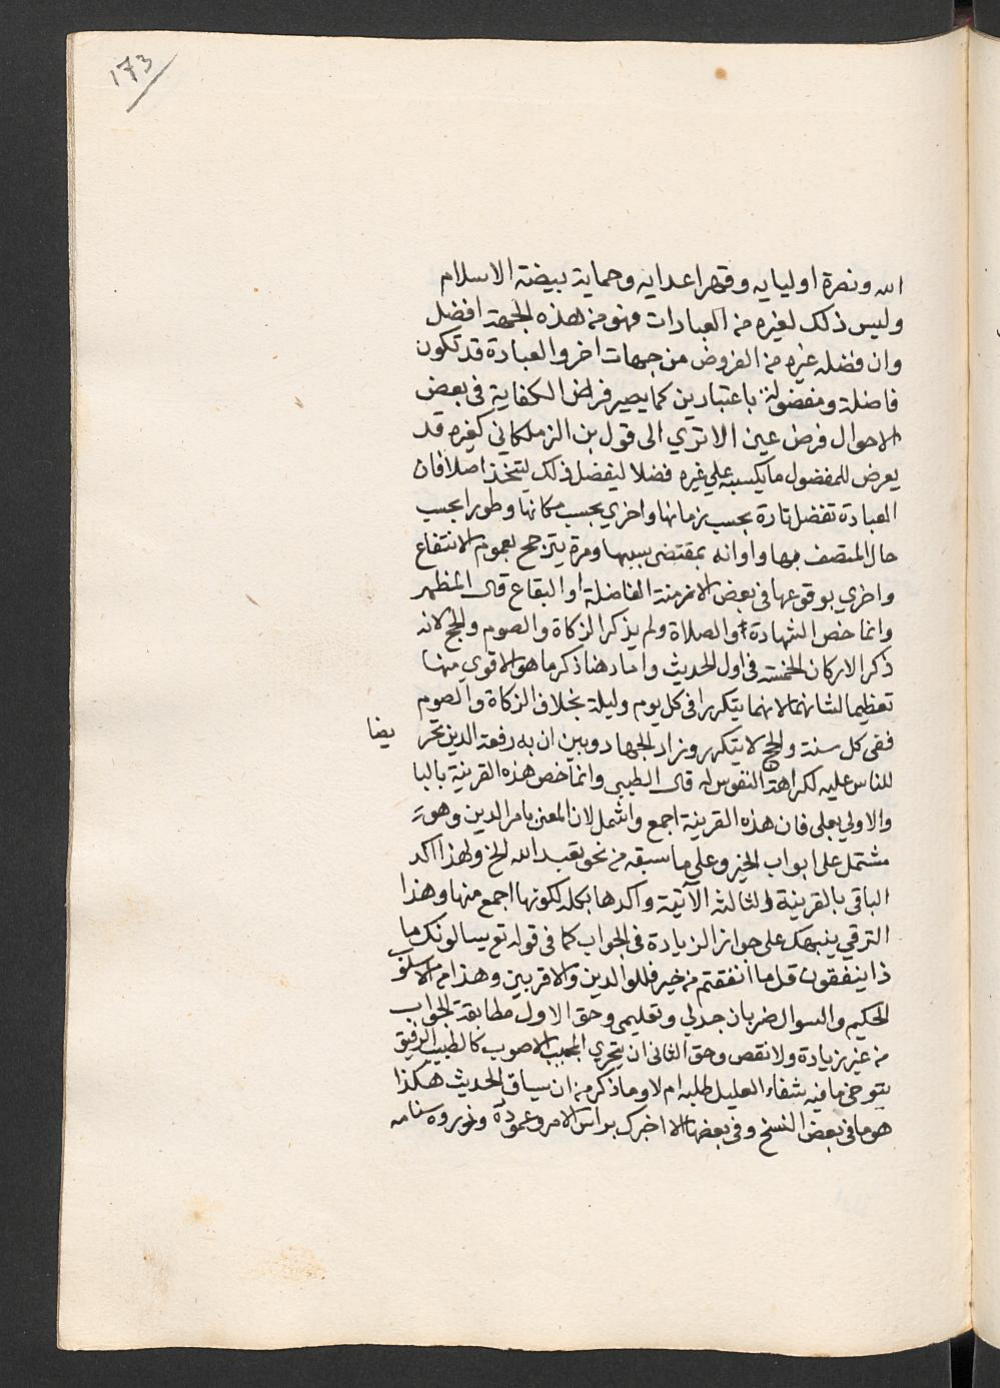 173
الله ونصرة اوليايه وقهر اعدايه وحماية بيضة الاسلام
وليس ذلك لغيره من العبادات فهو من هذه الجهة افضل
وان فضله غيره من الفروض من جهات اخر والعبادة قد تكون
فاضلة ومفضولة باعتبارين كما يصير فرض الكفاية في بعض
الاحوال فرض عين الا تري الى قول بن الزملكاني كغيره قد
يعرض للمفضول ما يكسبه علي غيره فضلا ليفضل ذلك ليتخذ اصلا فان
العبادة تفضل تارة بحسب زمانها واخري بحسب مكانها وطورا بحسب
حال المتصف بها واوانه بمقتضى سببها ومرة يترجح بعموم الانتفاع
واخري بوقوعها في بعض الازمنة الفاضلة او البقاع قال المظهر
وانما خص الشهادة والصلاة ولم يذكر الزكاة والصوم والحج لانه
ذكر الاركان الخمسة في اول الحديث واعاد هنا ذكر ما هو الاقوي منها
تعظيما لشانهما لانهما يتكررا في كل يوم وليلة بخلاف الزكاة والصوم
ففي كل سنة والحج لا يتكرر وزاد الجهاد وبين ان به رفعة الدين تحر يضا
للناس عليه لكراهة النفوس له قال الطيبي وانما خص هذه القرينة بالبا
والاولي بعلى فان هذه القرينة اجمع واشمل لان المعنى بامر الدين وهو
مشتمل على ابواب الخير وعلي ما سبقه من نحو تعبد الله الخ ولهذا اكد
الباقي بالقرينة الثالثة الآتية واكدها بكله لكونها اجمع منها وهذا
الترقي ينبهك على جواز الزيادة في الجواب كما في قوله تع يسالونك ما
ذا ينفقون قل ما انفقتم من خير فللوالدين والاقربين وهذا من الاسلو
الحكيم والسوال ضربان جدلي وتعليمي وحق الاول مطابقة الجواب
من غير زيادة ولا نقص وحق الثاني ان يتحري المجيب الاصوب كالطبيب الرفيق
يتوخى ما فيه شفاء العليل طلبه ام لا وما ذكر من ان سياق الحديث هكذا
هو ما في بعض النسخ وفي بعضها الا اخبرك براس الامر وعموده وذروة سنامه